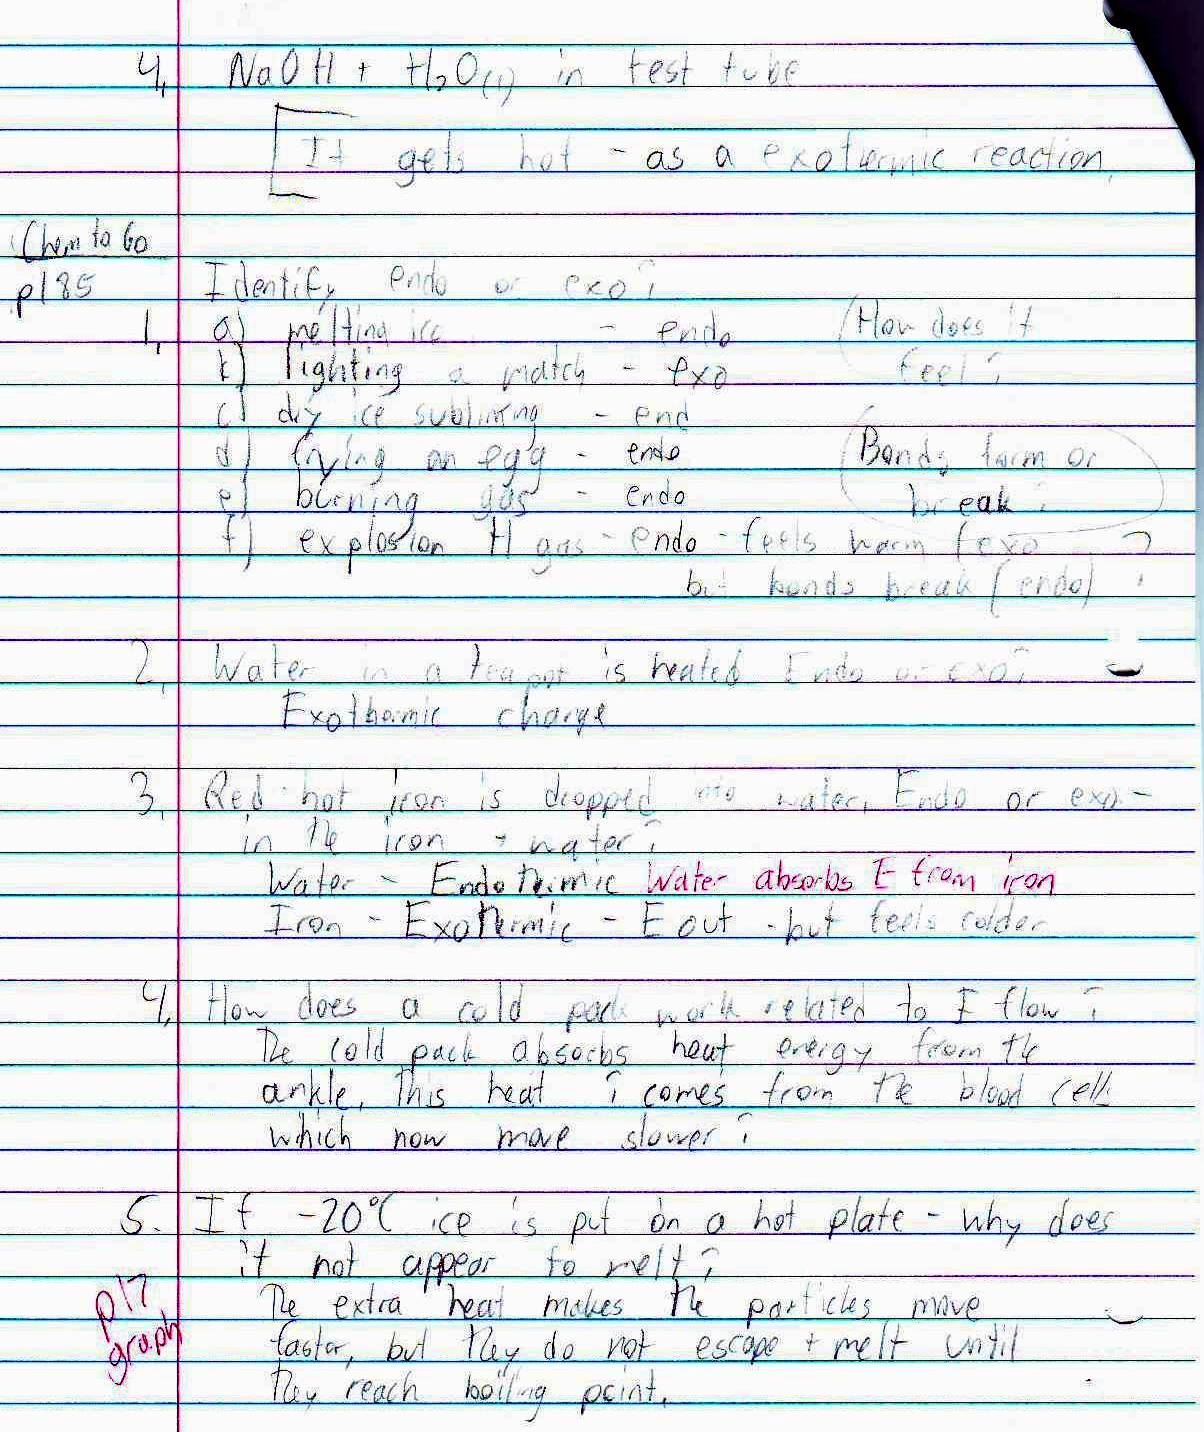 4. NaOH + H2O(l) in test tube
It gets hot - as a exothermic reaction.
Chem to Go
p185 Identify endo or exo?
1. a) melting ice - endo (How does it
b) lighting a match - exo feel?
c) dry ice subliming - end
d) frying an egg - endo (Bonds form or
e) burning gas - endo break?
f) explosion H gas - endo - feels warm (exo ?
but bonds break (endo) ?
2. Water in a teapot is heated Endo or exo?
Exothermic change
3. Red hot iron is dropped into water. Endo or exo -
in the iron + water?
Water - Endothermic Water absorbs E from iron
Iron - Exothermic - E out - but feels colder
4. How does a cold pack work related to E flow?
The cold pack absorbs heat energy from the
ankle. This heat ? comes from the blood cells
which now move slower?
5. If -20°C ice is put on a hot plate - why does
it not appear to melt?
p17 The extra heat makes the particles move
graph faster, but they do not escape + melt until
they reach boiling point.